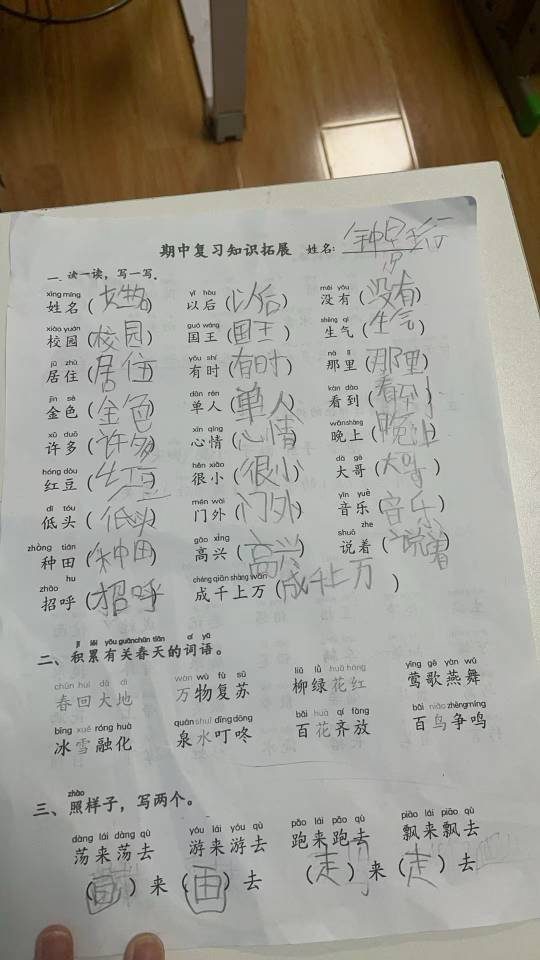 期中复习知识拓展 姓名:
一、读一读，写一写。
xìng míng yǐ hòu méi yǒu
姓名（姓名） 以后（以后） 没有（没有）
xiào yuán guó wáng shēng qì
校园（校园） 国王（国王） 生气（生气）
jū zhù yǒu shí nà lǐ
居住（居住） 有时（有时） 那里（那里）
jīn sè dān rén kàn dào
金色（金色） 单人（单人） 看到（看到）
xǔ duō xīn qíng wǎn shàng
许多（许多） 心情（心情） 晚上（晚上）
hóng dòu hěn xiǎo dà gē
红豆（红豆） 很小（很小） 大哥（大哥）
dī tóu mén wài yīn yuè
低头（低头） 门外（门外） 音乐（音乐）
zhòng tián gāo xìng shuō zhe
种田（种田） 高兴（高兴） 说着（说着）
zhāo hu chéng qiān shàng wàn
招呼（招呼） 成千上万（成千上万）
jī lěi yǒu guān chūn tiān cí yǔ
二、积累有关春天的词语。
chūn huí dà dì wàn wù fù sū liǔ lǜ huā hóng yīng gē yàn wǔ
春回大地 万物复苏 柳绿花红 莺歌燕舞
bīng xuě róng huà quán shuǐ dīng dōng bǎi huā qí fàng bǎi niǎo zhēng míng
冰雪融化 泉水叮咚 百花齐放 百鸟争鸣
zhào
三、照样子，写两个。
dàng lái dàng qù yóu lái yóu qù pǎo lái pǎo qù piāo lái piāo qù
荡来荡去 游来游去 跑来跑去 飘来飘去
（ ）来（ ）去 （走）来（走）去